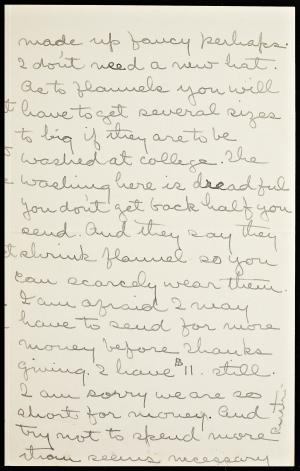 made up fancy perhaps.
I don't need a new hat.
As to flannels you will
have to get several sizes
to big if they are to be
washed at college. The
washing here is dreadful
You don't get back half you
send. And they say they
shrink flannel so you
can scarcely wear them.
I am afraid I may
have to send for more
money before thanks
giving. I have $11. still.
I am sorry we are so
short for money. And
try not to spend more
than seems necessary